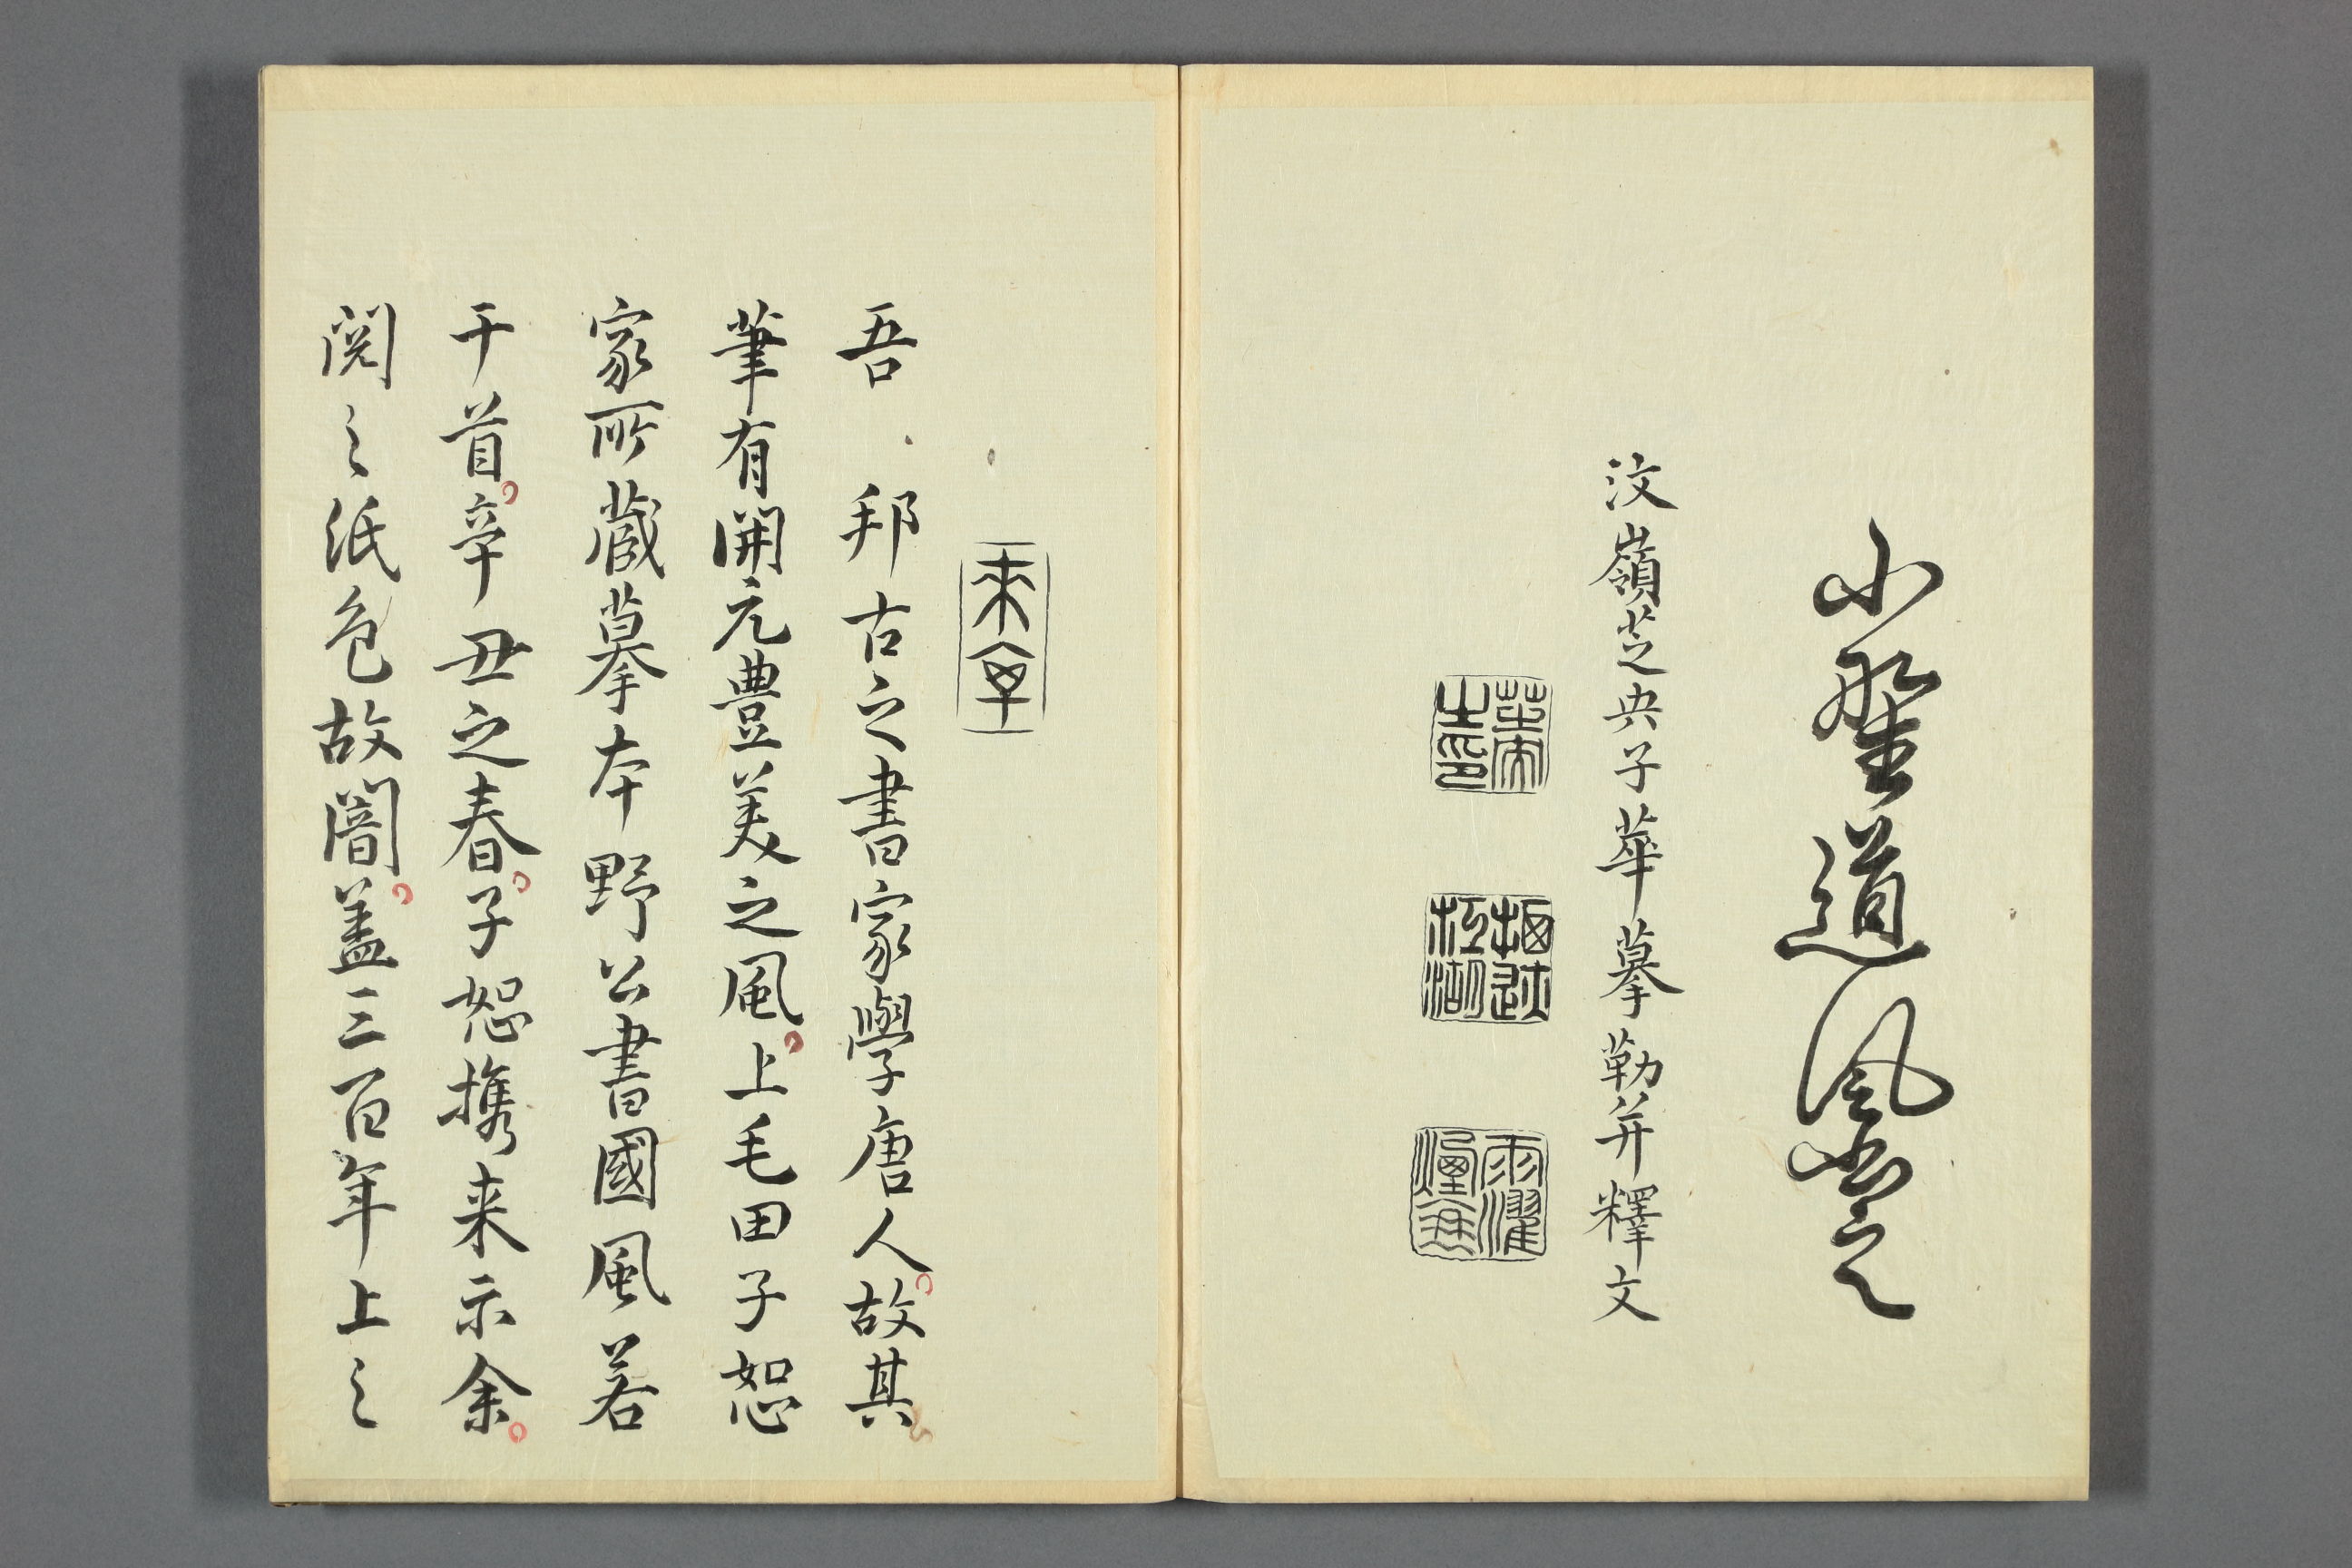 小野道風書之
汶嶺芝典子華摹勒并釋文
吾　邦古之書家學唐人故其
筆有開元豊美之風上毛田子恕
家所蔵摹本野公書國風若
干首辛丑之春子恕携来示余
閲之紙色故闇盖三百年上之